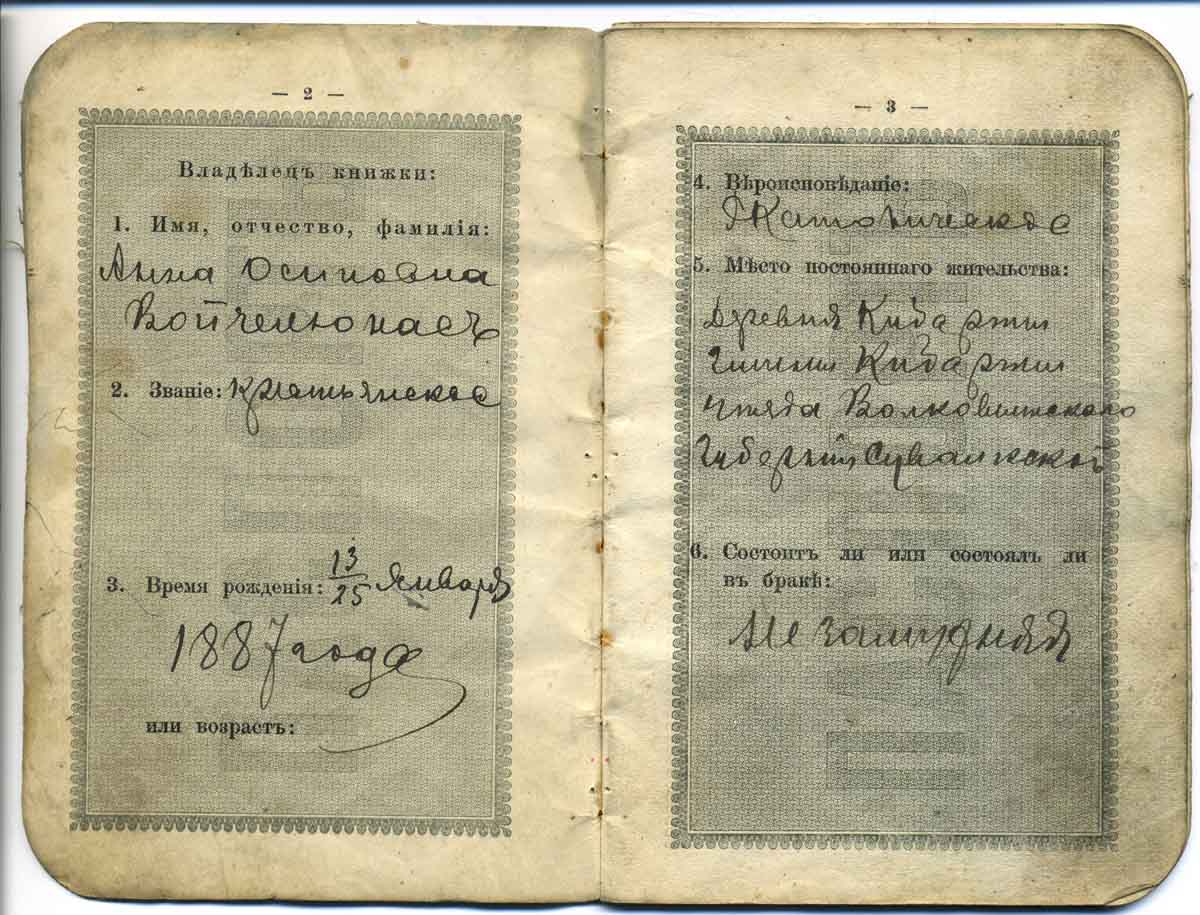 — 2 —
Владѣлецъ книжки:
1. Имя, отчество, фамилія:
Анна Осиповна
Войчелюнасъ
2. Званіе: крестьянское
3. Время рожденія: 13/25 января
1887 года
или возрастъ:
— 3 —
4. Вѣроисповѣданіе:
Католическое
5. Мѣсто постояннаго жительства:
Деревня Кибарты
Гмины Кибарты
уѣзда Волковышскаго
Губерніи Сувалкской
6. Состоитъ ли или состоялъ ли
въ бракѣ:
Незамужняя